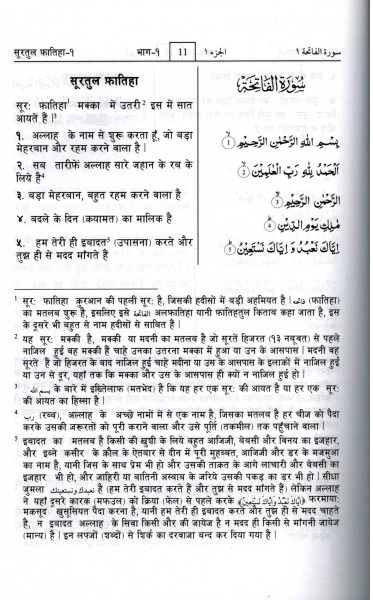 सूरतुल फातिहा-१ भाग-१ 11 الجزء ١ سورة الفاتحة ١
सूरतुल फातिहा
सूर: फातिहा¹ मक्का में उतरी² इस में सात
आयतें हैं।³
१. अल्लाह के नाम से शुरू करता हूँ, जो बड़ा
मेहरबान और रहम करने वाला है।
२. सब तारीफें अल्लाह सारे जहान के रब के
लिये है⁴
३. बड़ा मेहरबान, बहुत रहम करने वाला है
४. बदले के दिन (क़यामत) का मालिक है
५. हम तेरी ही इबादत⁵ (उपासना) करते और
तुझ ही से मदद मांगते हैं
سُورَةُ الْفَاتِحَةِ
بِسْمِ اللَّهِ الرَّحْمَٰنِ الرَّحِيمِ ۝١
اَلْحَمْدُ لِلَّهِ رَبِّ الْعَٰلَمِينَ ۝٢
الرَّحْمَٰنِ الرَّحِيمِ ۝٣
مَٰلِكِ يَوْمِ الدِّينِ ۝٤
إِيَّاكَ نَعْبُدُ وَإِيَّاكَ نَسْتَعِينُ ۝٥
¹ सूर: फातिहा क़ुरआन की पहली सूर: है, जिसकी हदीसों में बड़ी अहमियत है। فاتحه (फातिहा)
का मतलब शुरू है, इसलिए इसे الفاتحة अलफातिहा यानी फातिहतुल किताब कहा जाता है, इस
के दूसरे भी बहुत से नाम हदीसों से साबित हैं।
² यह सूर: मक्की है, मक्की या मदनी का मतलब है जो सूरतें हिजरत (१३ नबूवत) से पहले
नाजिल हुई वह मक्की हैं चाहे उनका उतरना मक्का में हुआ या उन के आसपास। मदनी वह
सूरतें हैं जो हिजरत के बाद नाजिल हुई चाहे मदीना या उस के आसपास के इलाकों में नाजिल हुई
या उन से दूर, यहाँ तक कि मक्का और उस के आसपास ही क्यों न नाजिल हुई हों।
³ بسم الله के बारे में इख़्तेलाफ़ (मतभेद) है कि यह हर एक सूर: की आयत है या हर एक सूर:
की आयत का हिस्सा है।
⁴ رب (रब्ब), अल्लाह के अच्छे नामों में से एक नाम है, जिसका मतलब है हर चीज को पैदा
करके उसकी जरूरतों को पूरी कराने वाला और उसे पूर्ति (तकमील) तक पहुँचाने वाला।
⁵ इबादत का मतलब है किसी की खुशी के लिये बहुत आजिजी, बेबसी और विनय का इजहार,
और इब्ने कसीर के क़ौल के ऐतबार से दीन में पूरी मुहब्बत, आजिजी और डर के मजमुआ
का नाम है, यानी जिस के साथ प्रेम भी हो और उसकी ताकत के आगे लाचारी और बेबसी का
इजहार भी हो, और जाहिरी या बातिनी अस्बाब के जरिये उसकी पकड़ का डर भी हो। सीधा
जुमला نعبدك ونستعينك है (हम तेरी इबादत करते हैं और तुझ से मदद मांगते हैं) लेकिन अल्लाह
ने यहाँ दूसरे कारक (मफऊल) को क्रिया (फेल) से पहले करके (إِيَّاكَ نَعْبُدُ وَإِيَّاكَ نَسْتَعِينُ) फरमाया:
मकसूद खुसूसियत पैदा करना है, यानी हम तेरी ही इबादत करते और तुझ ही से मदद चाहते
है, न इबादत अल्लाह के सिवा किसी और की जायेज है न मदद ही किसी से मांगनी जायेज
(मान्य) है। इन लफ्जों (शब्दों) से शिर्क का दरवाजा बन्द कर दिया गया है।